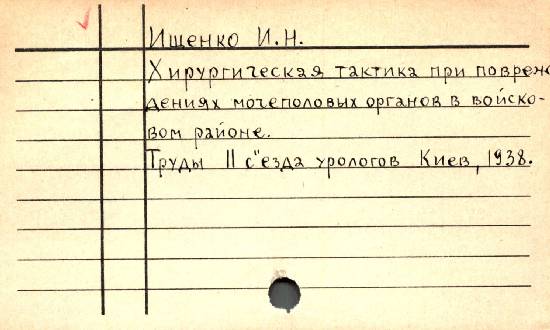 Ищенко И.Н.
Хирургическая тактика при повреж
дениях мочеполовых органов в войско-
вом районе.
Труды II с"езда урологов Киев, 1938.